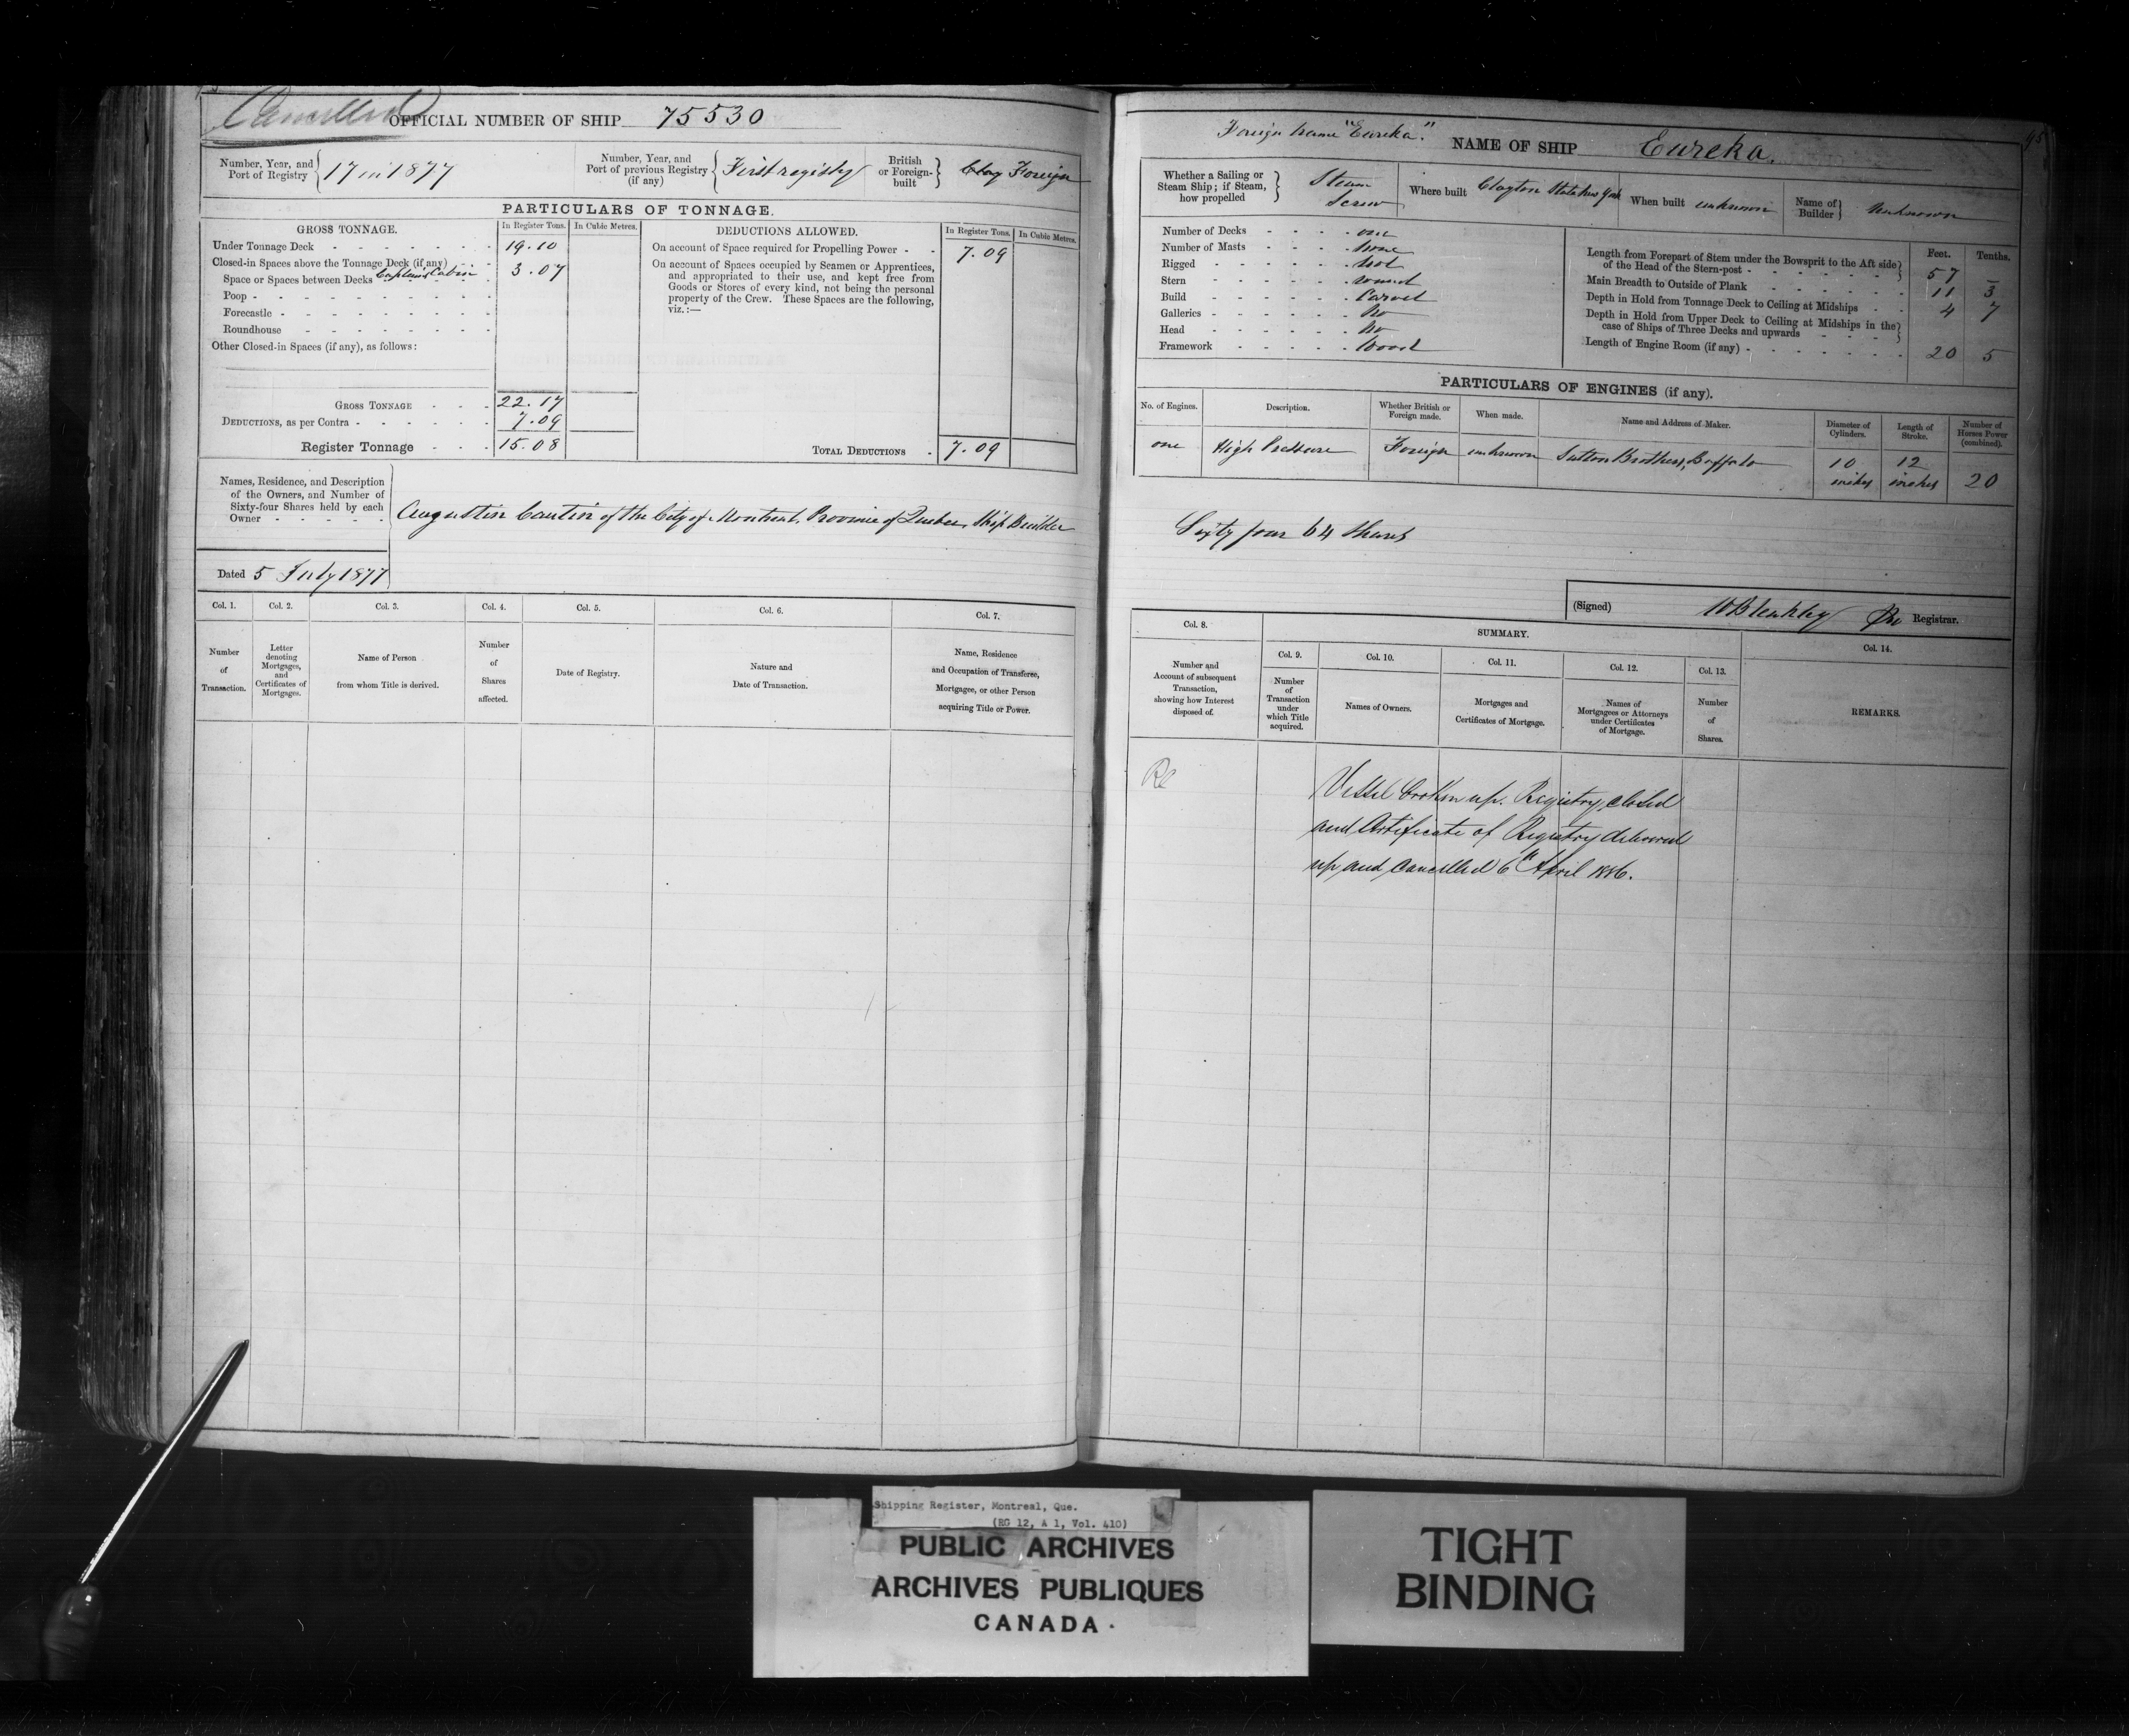 Cancelled
OFFICIAL NUMBER OF SHIP 75530
Number, Year, and Port of Registry 17 in 1877
Number, Year, and Port of previous Registry (if any) First registry
British or Foreign-built Foreign
PARTICULARS OF TONNAGE.
GROSS TONNAGE. In Register Tons. In Cubic Metres.
Under Tonnage Deck 19.10
Closed-in Spaces above the Tonnage Deck (if any)
Space or Spaces between Decks Captain's Cabin 3.07
Poop
Forecastle
Roundhouse
Other Closed-in Spaces (if any), as follows:
GROSS TONNAGE 22.17
DEDUCTIONS, as per Contra 7.09
Register Tonnage 15.08
DEDUCTIONS ALLOWED. In Register Tons. In Cubic Metres.
On account of Space required for Propelling Power 7.09
On account of Spaces occupied by Seamen or Apprentices,
and appropriated to their use, and kept free from
Goods or Stores of every kind, not being the personal
property of the Crew. These Spaces are the following,
viz.:—
TOTAL DEDUCTIONS 7.09
Names, Residence, and Description
of the Owners, and Number of
Sixty-four Shares held by each
Owner
Augustin Cantin of the City of Montreal, Province of Quebec, Ship Builder
Dated 5 July 1877
Col. 1. Col. 2. Col. 3. Col. 4. Col. 5. Col. 6. Col. 7.
Number of Transaction.
Letter denoting Mortgages, and Certificates of Mortgages.
Name of Person from whom Title is derived.
Number of Shares affected.
Date of Registry.
Nature and Date of Transaction.
Name, Residence and Occupation of Transferee, Mortgagee, or other Person acquiring Title or Power.
95
Foreign name "Eureka."
NAME OF SHIP Eureka.
Whether a Sailing or Steam Ship; if Steam, how propelled Steam Screw
Where built Clayton State New York
When built unknown
Name of Builder Unknown
Number of Decks one
Number of Masts none
Rigged not
Stern round
Build Carvel
Galleries No
Head No
Framework Wood
Feet. Tenths.
Length from Forepart of Stem under the Bowsprit to the Aft side of the Head of the Stern-post 57 –
Main Breadth to Outside of Plank 11 3
Depth in Hold from Tonnage Deck to Ceiling at Midships 4 7
Depth in Hold from Upper Deck to Ceiling at Midships in the case of Ships of Three Decks and upwards
Length of Engine Room (if any) 20 5
PARTICULARS OF ENGINES (if any).
No. of Engines. Description. Whether British or Foreign made. When made. Name and Address of Maker. Diameter of Cylinders. Length of Stroke. Number of Horses Power (combined).
one High Pressure Foreign unknown Sutton Brothers, Buffalo 10 inches 12 inches 20
Sixty four 64 Shares
(Signed) W Bleakley Registrar.
Col. 8. SUMMARY. Col. 14.
Col. 9. Col. 10. Col. 11. Col. 12. Col. 13.
Number and Account of subsequent Transaction, showing how Interest disposed of.
Number of Transaction under which Title acquired.
Names of Owners.
Mortgages and Certificates of Mortgage.
Names of Mortgagees or Attorneys under Certificates of Mortgage.
Number of Shares.
REMARKS.
Vessel broken up. Registry closed
and Certificate of Registry delivered
up and cancelled 6th April 1886.
Shipping Register, Montreal, Que.
(RG 12, A 1, Vol. 410)
PUBLIC ARCHIVES
ARCHIVES PUBLIQUES
CANADA
TIGHT
BINDING